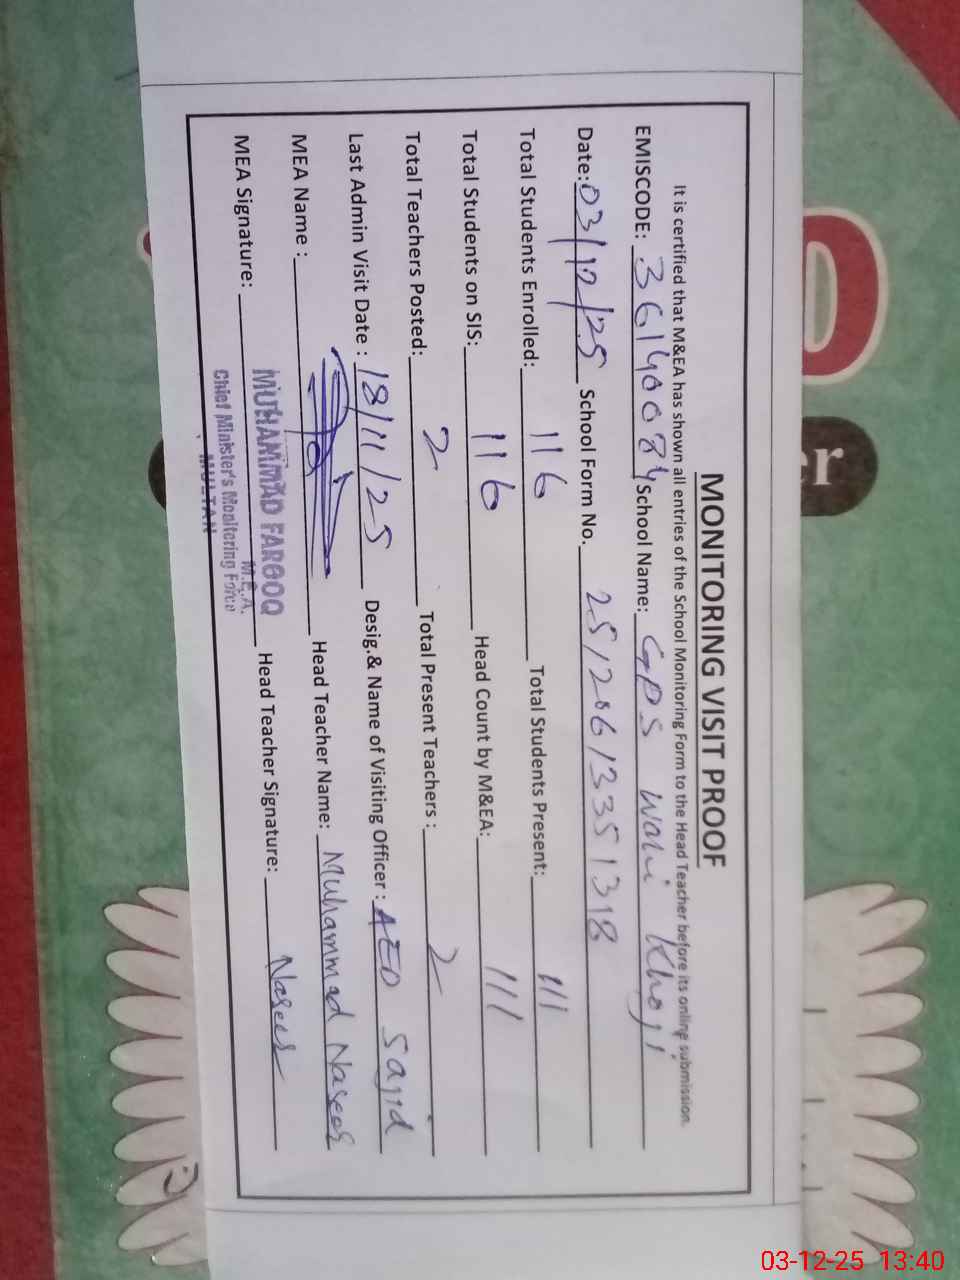 MONITORING VISIT PROOF
It is certified that M&EA has shown all entries of the School Monitoring Form to the Head Teacher before its online submission.
EMISCODE: 36140084 School Name: GPS Wali Khoji
Date: 03/12/25 School Form No. 25120613351318
Total Students Enrolled: 116 Total Students Present: 111
Total Students on SIS: 116 Head Count by M&EA: 111
Total Teachers Posted: 2 Total Present Teachers : 2
Last Admin Visit Date : 18/11/25 Desig.& Name of Visiting Officer : AEO Sajid
MEA Name : Head Teacher Name: Muhammad Naseer
MEA Signature: Head Teacher Signature: Naseer
MUHAMMAD FAROOQ
M.E.A.
Chief Minister's Monitoring Force
MULTAN
er
03-12-25 13:40